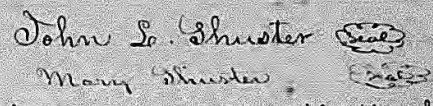 John L. Shuster Seal
Mary Shuster Seal